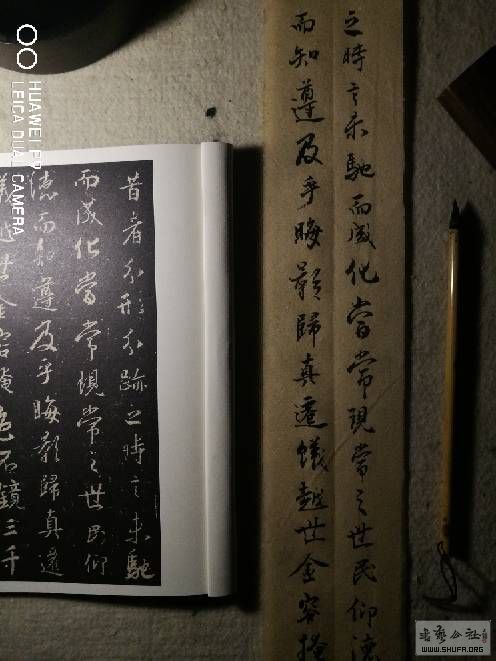 之時言未馳而成化當常現常之世民仰德
而知遵及乎晦影歸真遷儀越世金容掩
昔者分形分跡之時言未馳
而成化當常現常之世民仰
德而知遵及乎晦影歸真遷
儀越世金容掩色不鏡三千
HUAWEI P9
LEICA DUAL CAMERA
书艺公社
WWW.SHUFA.ORG